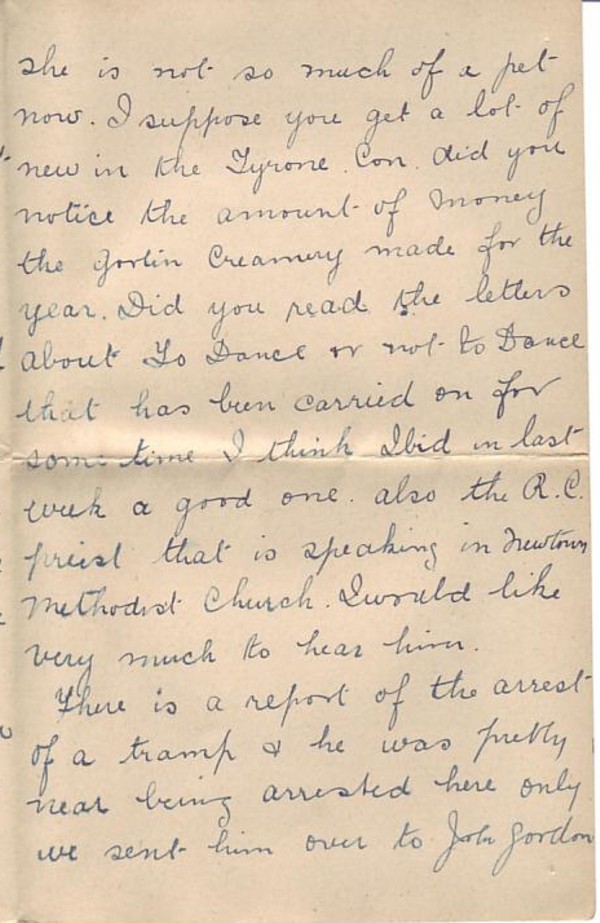 she is not so much of a pet
now. I suppose you get a lot of
new in the Tyrone. Con. did you
notice the amount of money
the Gortin Creamery made for the
year. Did you read the letters
about To Dance or not to Dance
that has been carried on for
some time I think Ibid in last
week a good one. also the R.C.
preist that is speaking in Newtown
Methodist Church. I would like
very much to hear him.
There is a report of the arrest
of a tramp & he was pretty
near being arrested here only
we sent him over to Gordon